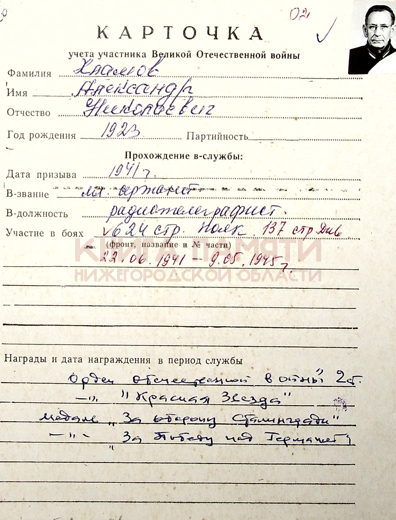 02
КАРТОЧКА
учета участника Великой Отечественной войны
Фамилия Храмов
Имя Александр
Отчество Николаевич
Год рождения 1923 Партийность
Прохождение в-службы:
Дата призыва 1941 г.
В-звание мл. сержант
В-должность радиотелеграфист.
Участие в боях 624 стр. полк. 137 стр див
(фронт, название и № части)
КНИГА ПАМЯТИ
22.06.1941 – 9.05.1945 г.
НИЖЕГОРОДСКОЙ ОБЛАСТИ
Награды и дата награждения в период службы
Орден отечественной войны 2 ст.
—„— "Красная Звезда"
Медаль „За оборону Сталинграда"
—„— За Победу над Германией